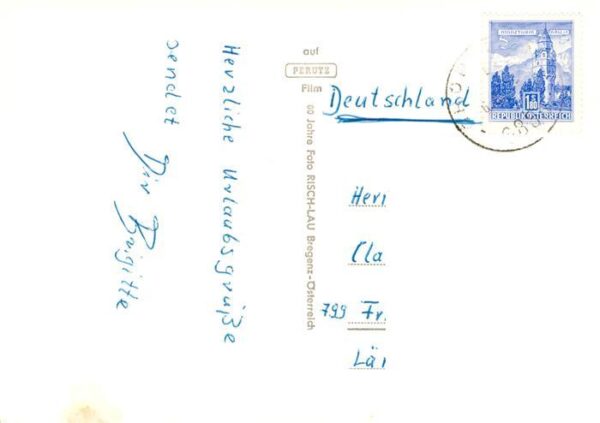 Herzliche Urlaubsgrüße
sendet
Dir Brigitte
auf
PERUTZ
Film
60 Jahre Foto RISCH-LAU Bregenz-Österreich
Deutschland
Herr
Cla
799 Fr.
Lä
1.80
REPUBLIK ÖSTERREICH